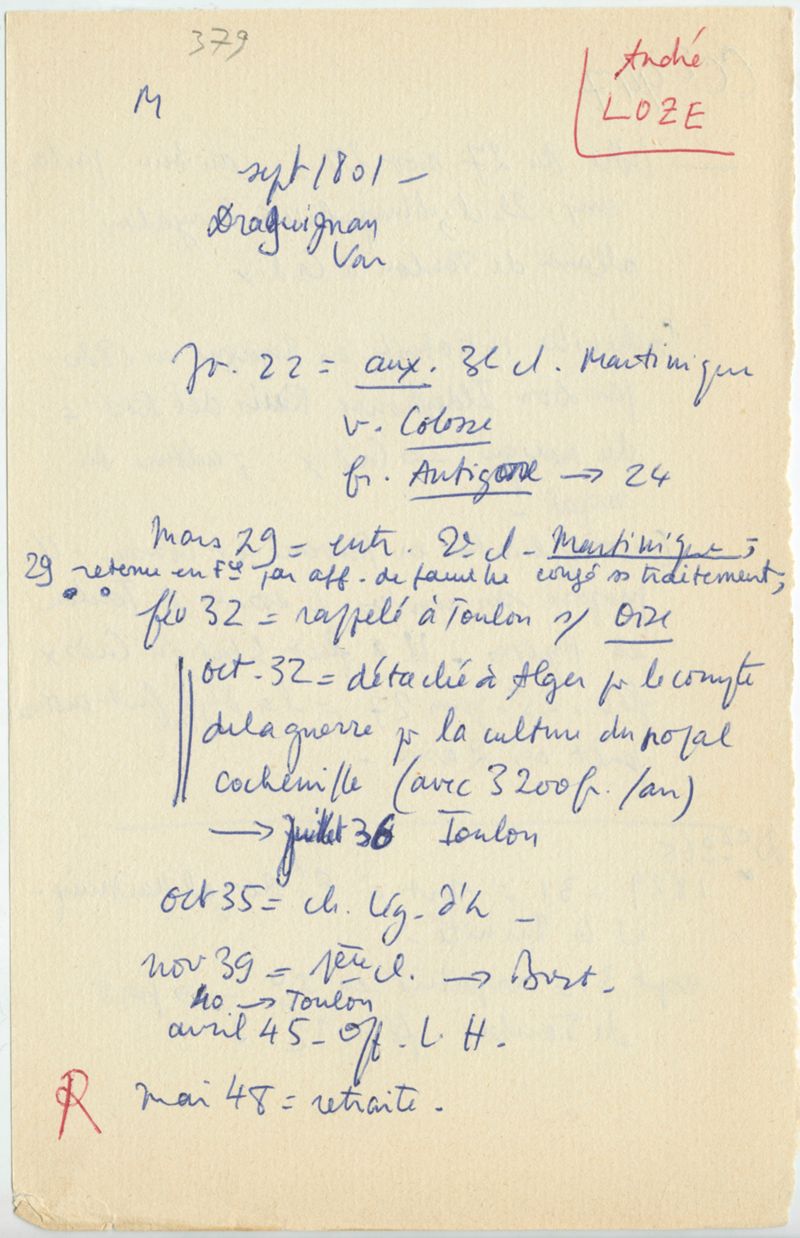 379
André
LOZE
M
sept 1801 –
Draguignan
Var
Jr. 22 = aux. 3e cl. Martinique
v. Colosse
fr. Antigone → 24
Mars 29 = entr. 2e cl – Martinique ;
29 retenu en Fce par aff. de famille congé ss traitement ;
fév 32 = rappelé à Toulon s/ Oise
oct. 32 = détaché à Alger pr le compte
de la guerre pr la culture du nopal
cochenille (avec 3200 fr. /an)
→ Juillet 36 Toulon
oct 35 = ch. Lég. d'h –
nov 39 = 1ère cl. → Brest.
40 → Toulon
avril 45 – Off. L. H.
R mai 48 = retraite.